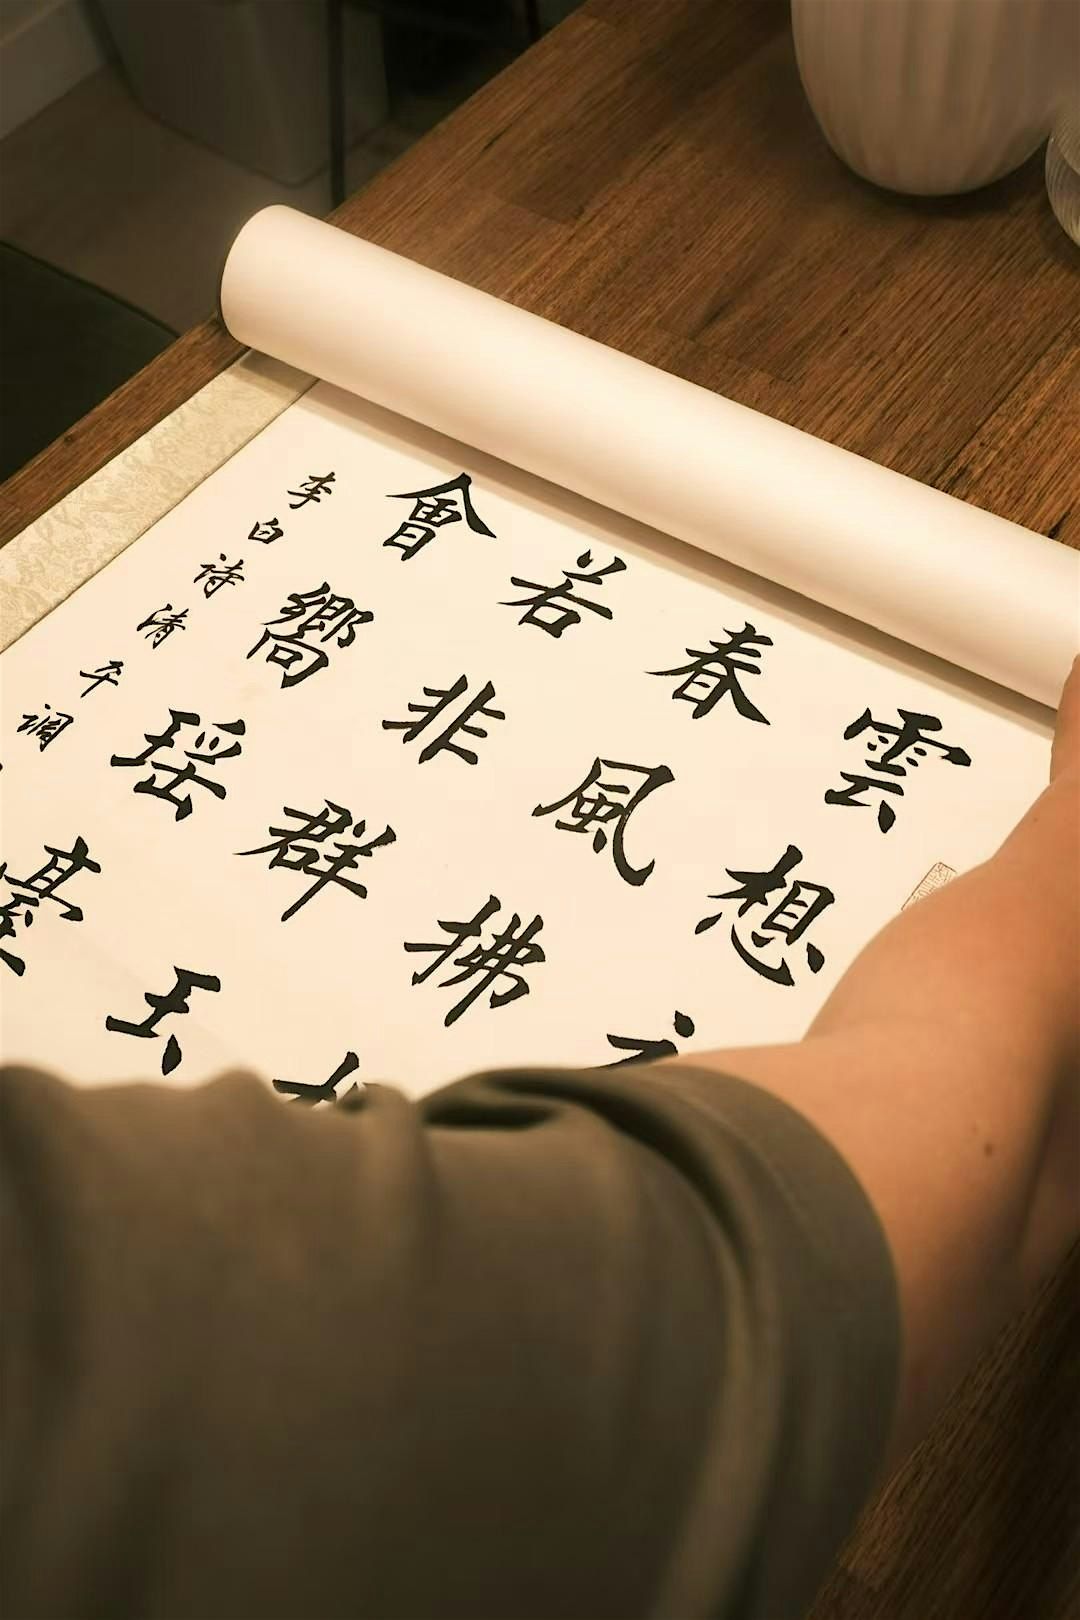 雲想
春風拂
若非群玉
會嚮瑶臺
李白诗清平调